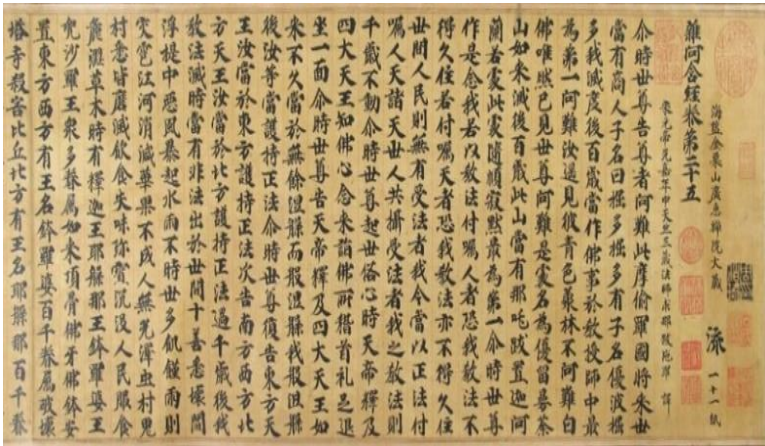 海鹽金粟山廣惠禪院大藏 流 一十一紙
雜阿含經卷第二十五
宋元帝元嘉年中天竺三藏法師求那跋陀羅 譯
尒時世尊告尊者阿難此摩偷羅國將來世
當有商人子名曰掘多掘多有子名優波掘
多我滅度後百歲當作佛事於教授師中最
為第一阿難汝遙見彼青色叢林不阿難白
佛唯然已見世尊阿難是處名為優留曼荼
山如來滅後百歲此山當有那吒跋置迦阿
蘭若處此處隨順寂默最為第一尒時世尊
作是念我若以教法付囑人者恐我教法不
得久住若付囑天者恐我教法亦不得久住
世間人民則無有受法者我今當以正法付
囑人天諸天世人共攝受法者我之教法則
千歲不動尒時世尊起世俗心時天帝釋及
四大天王知佛心念來詣佛所稽首礼足退
坐一面尒時世尊告天帝釋及四大天王如
來不久當於無餘涅槃而般涅槃我般涅槃
後汝等當護持正法尒時世尊復告東方天
王汝當於東方護持正法次告南方西方北
方天王汝當於北方護持正法過千歲後我
教法滅時當有非法出於世間十善悉壞閻
浮提中惡風暴起水雨不時世多飢饉雨則
災雹江河消滅華果不成人無光澤虫村鬼
村悉皆磨滅飲食失味珍寶沉沒人民服食
麁澁草木時有釋迦王耶槃那王鉢羅婆王
兜沙羅王衆多眷屬如來頂骨佛牙佛鉢安
置東方西方有王名鉢羅婆百千眷屬破壞
塔寺殺害比丘北方有王名耶槃那百千眷